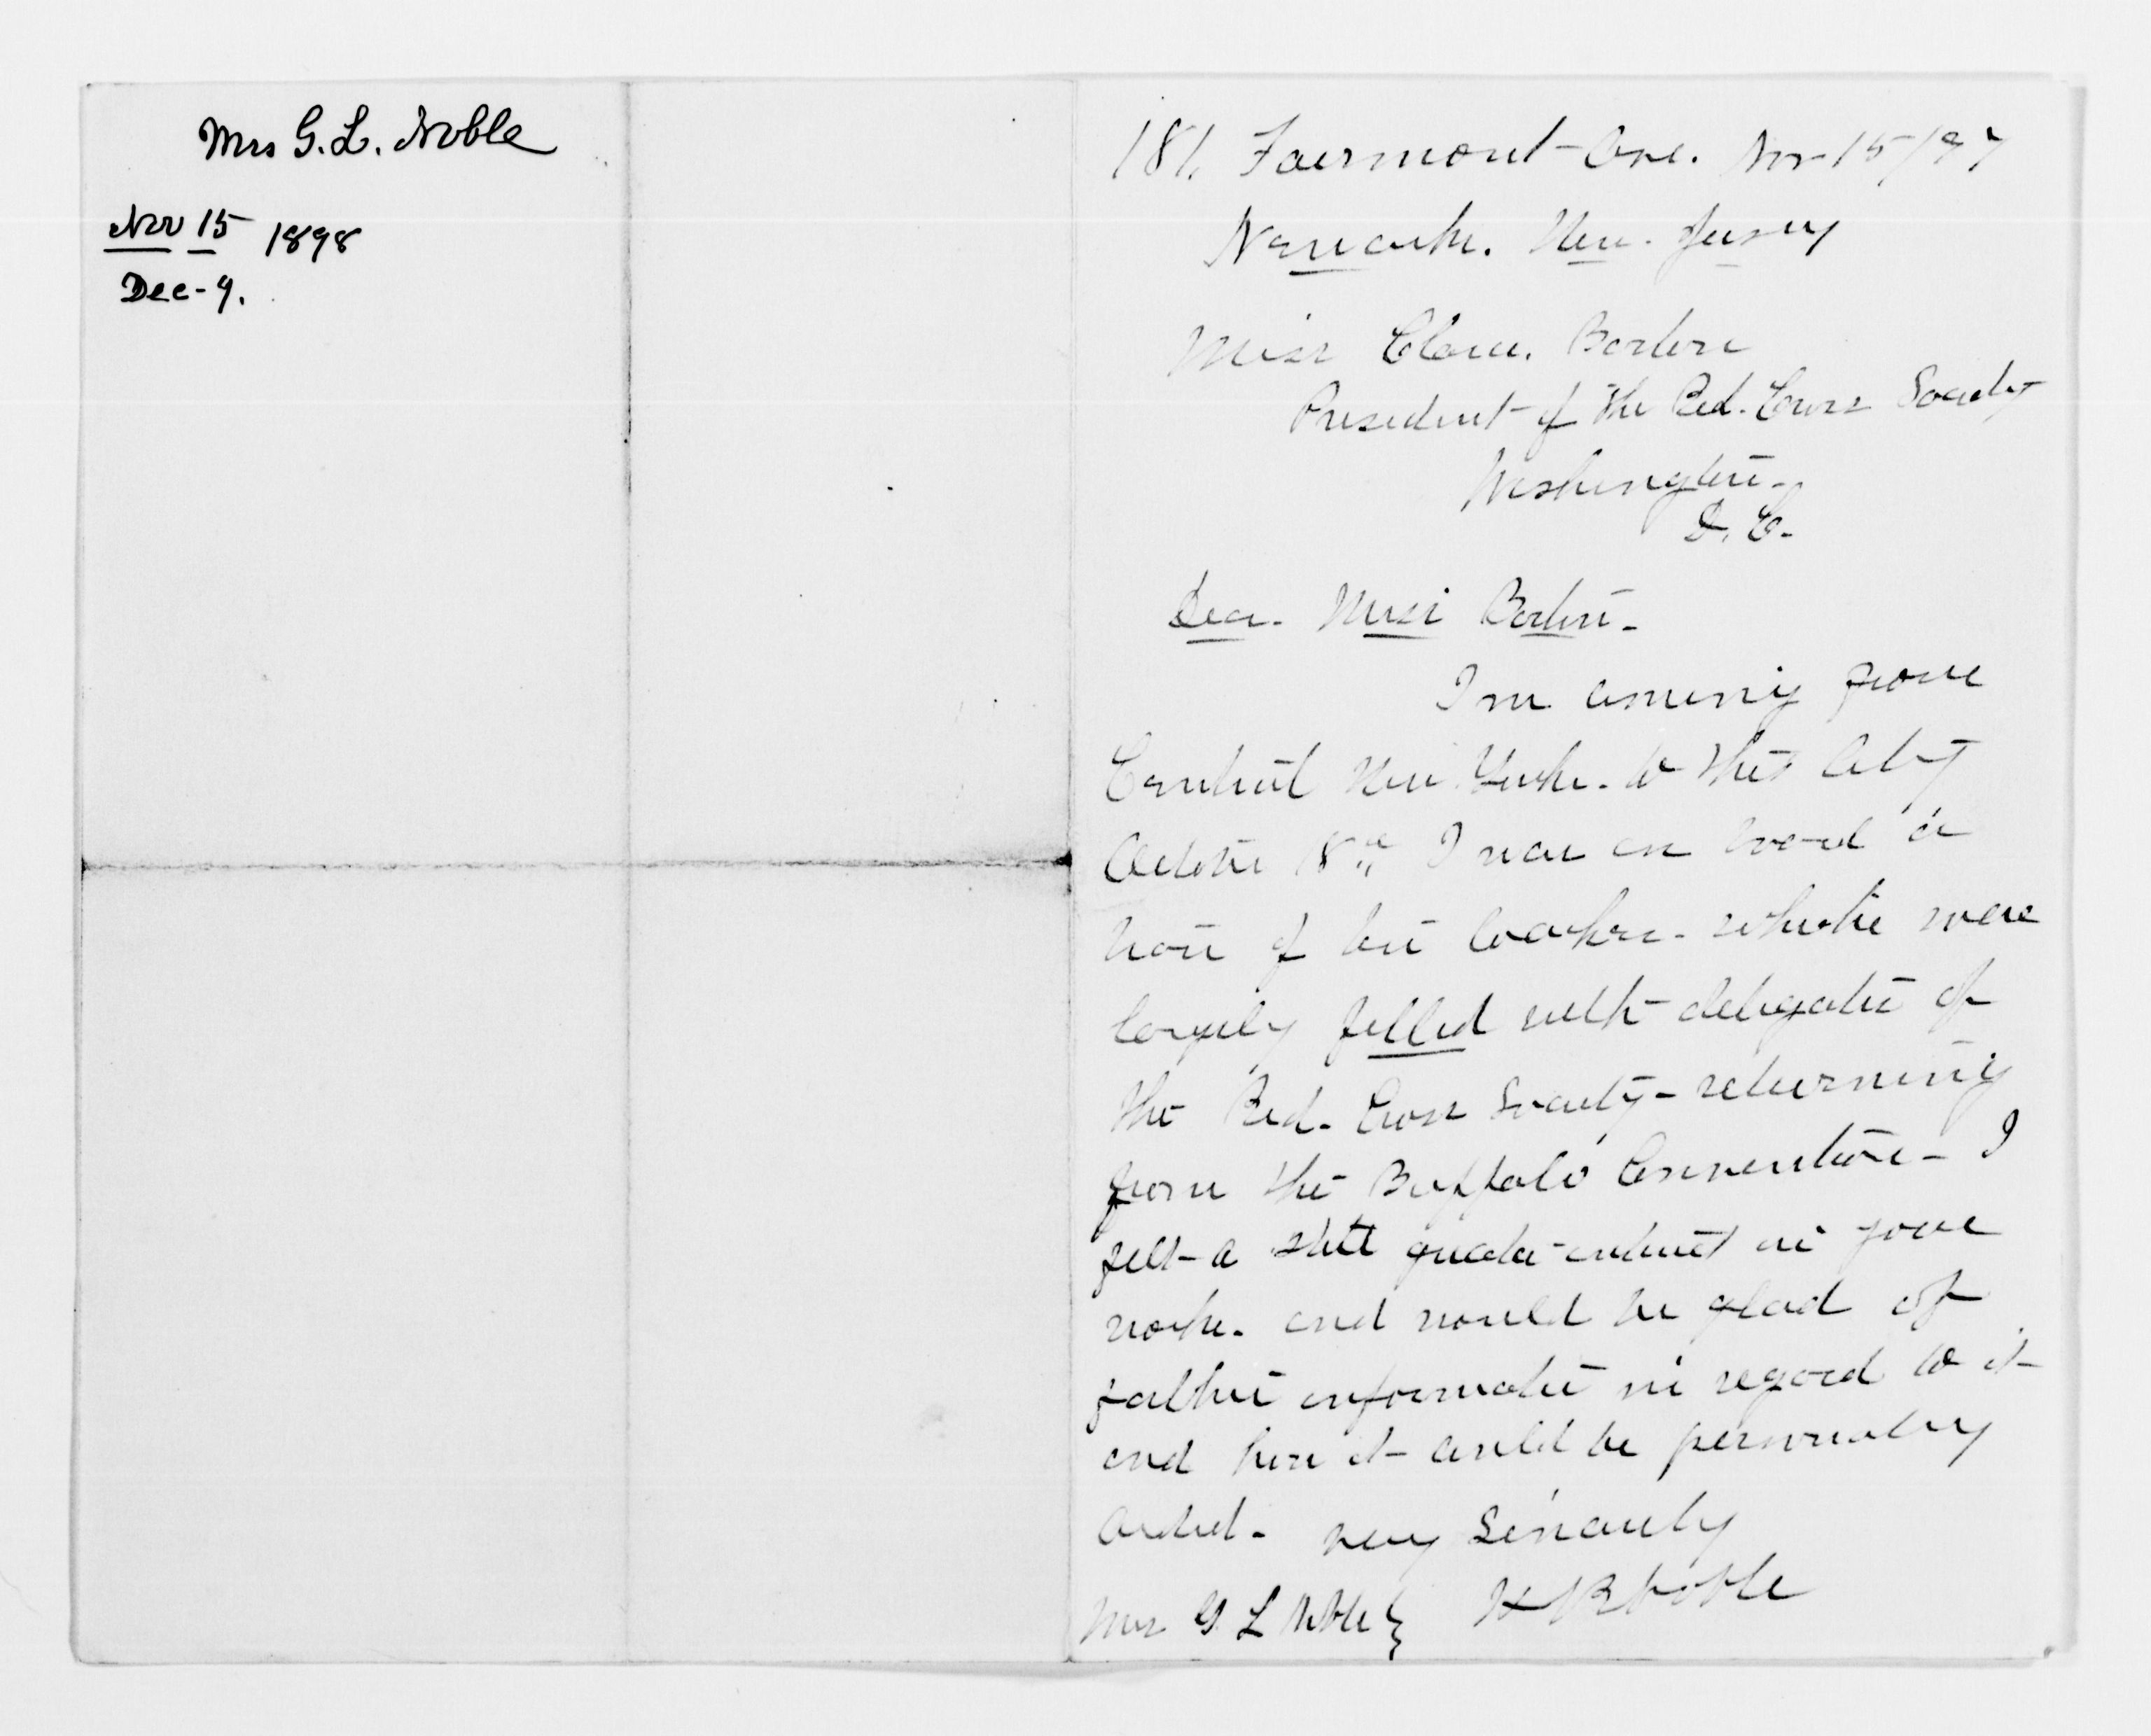 Mrs G. L. Noble
Nov 15 1898
Dec - 9.
181. Fairmont Ave. Nov 15/97
Newark. New. Jersey
Miss Clara. Barton
President of the Red. Cross Society
Washington.
D. C.
Dear. Miss Barton.
In coming from
Central New York. to this City
October 18th I was on board a
train of ten coaches. which were
largely filled with delegates of
the Red. Cross Society - returning
from the Buffalo Convention - I
felt a still greater interest in your
work. and would be glad of
further information in regard to it
and how it could be personally
aided. Very Sincerely
Mrs G L Noble} H B Noble